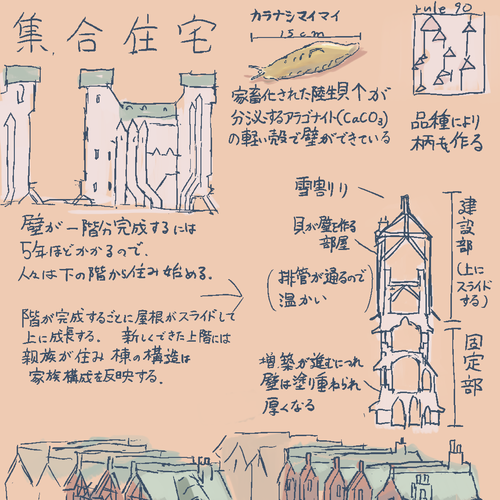 集合住宅
カラナシマイマイ
15cm
家畜化された陸生貝※が
分泌するアラゴナイト(CaCO₃)
の軽い殻で壁ができている
rule 90
品種により
柄も作る
壁が一階分完成するには
5年ほどかかるので、
人々は下の階から住み始める。
階が完成するごとに屋根がスライドして
上に成長する。 新しくできた上階には
親族が住み 棟の構造は
家族構成を反映する。
雪割り
貝が壁を作る
部屋
(排管が通るので
温かい)
増築が進むにつれ
壁は塗り重ねられ
厚くなる
建設部
(上に
スライド
する)
固定部